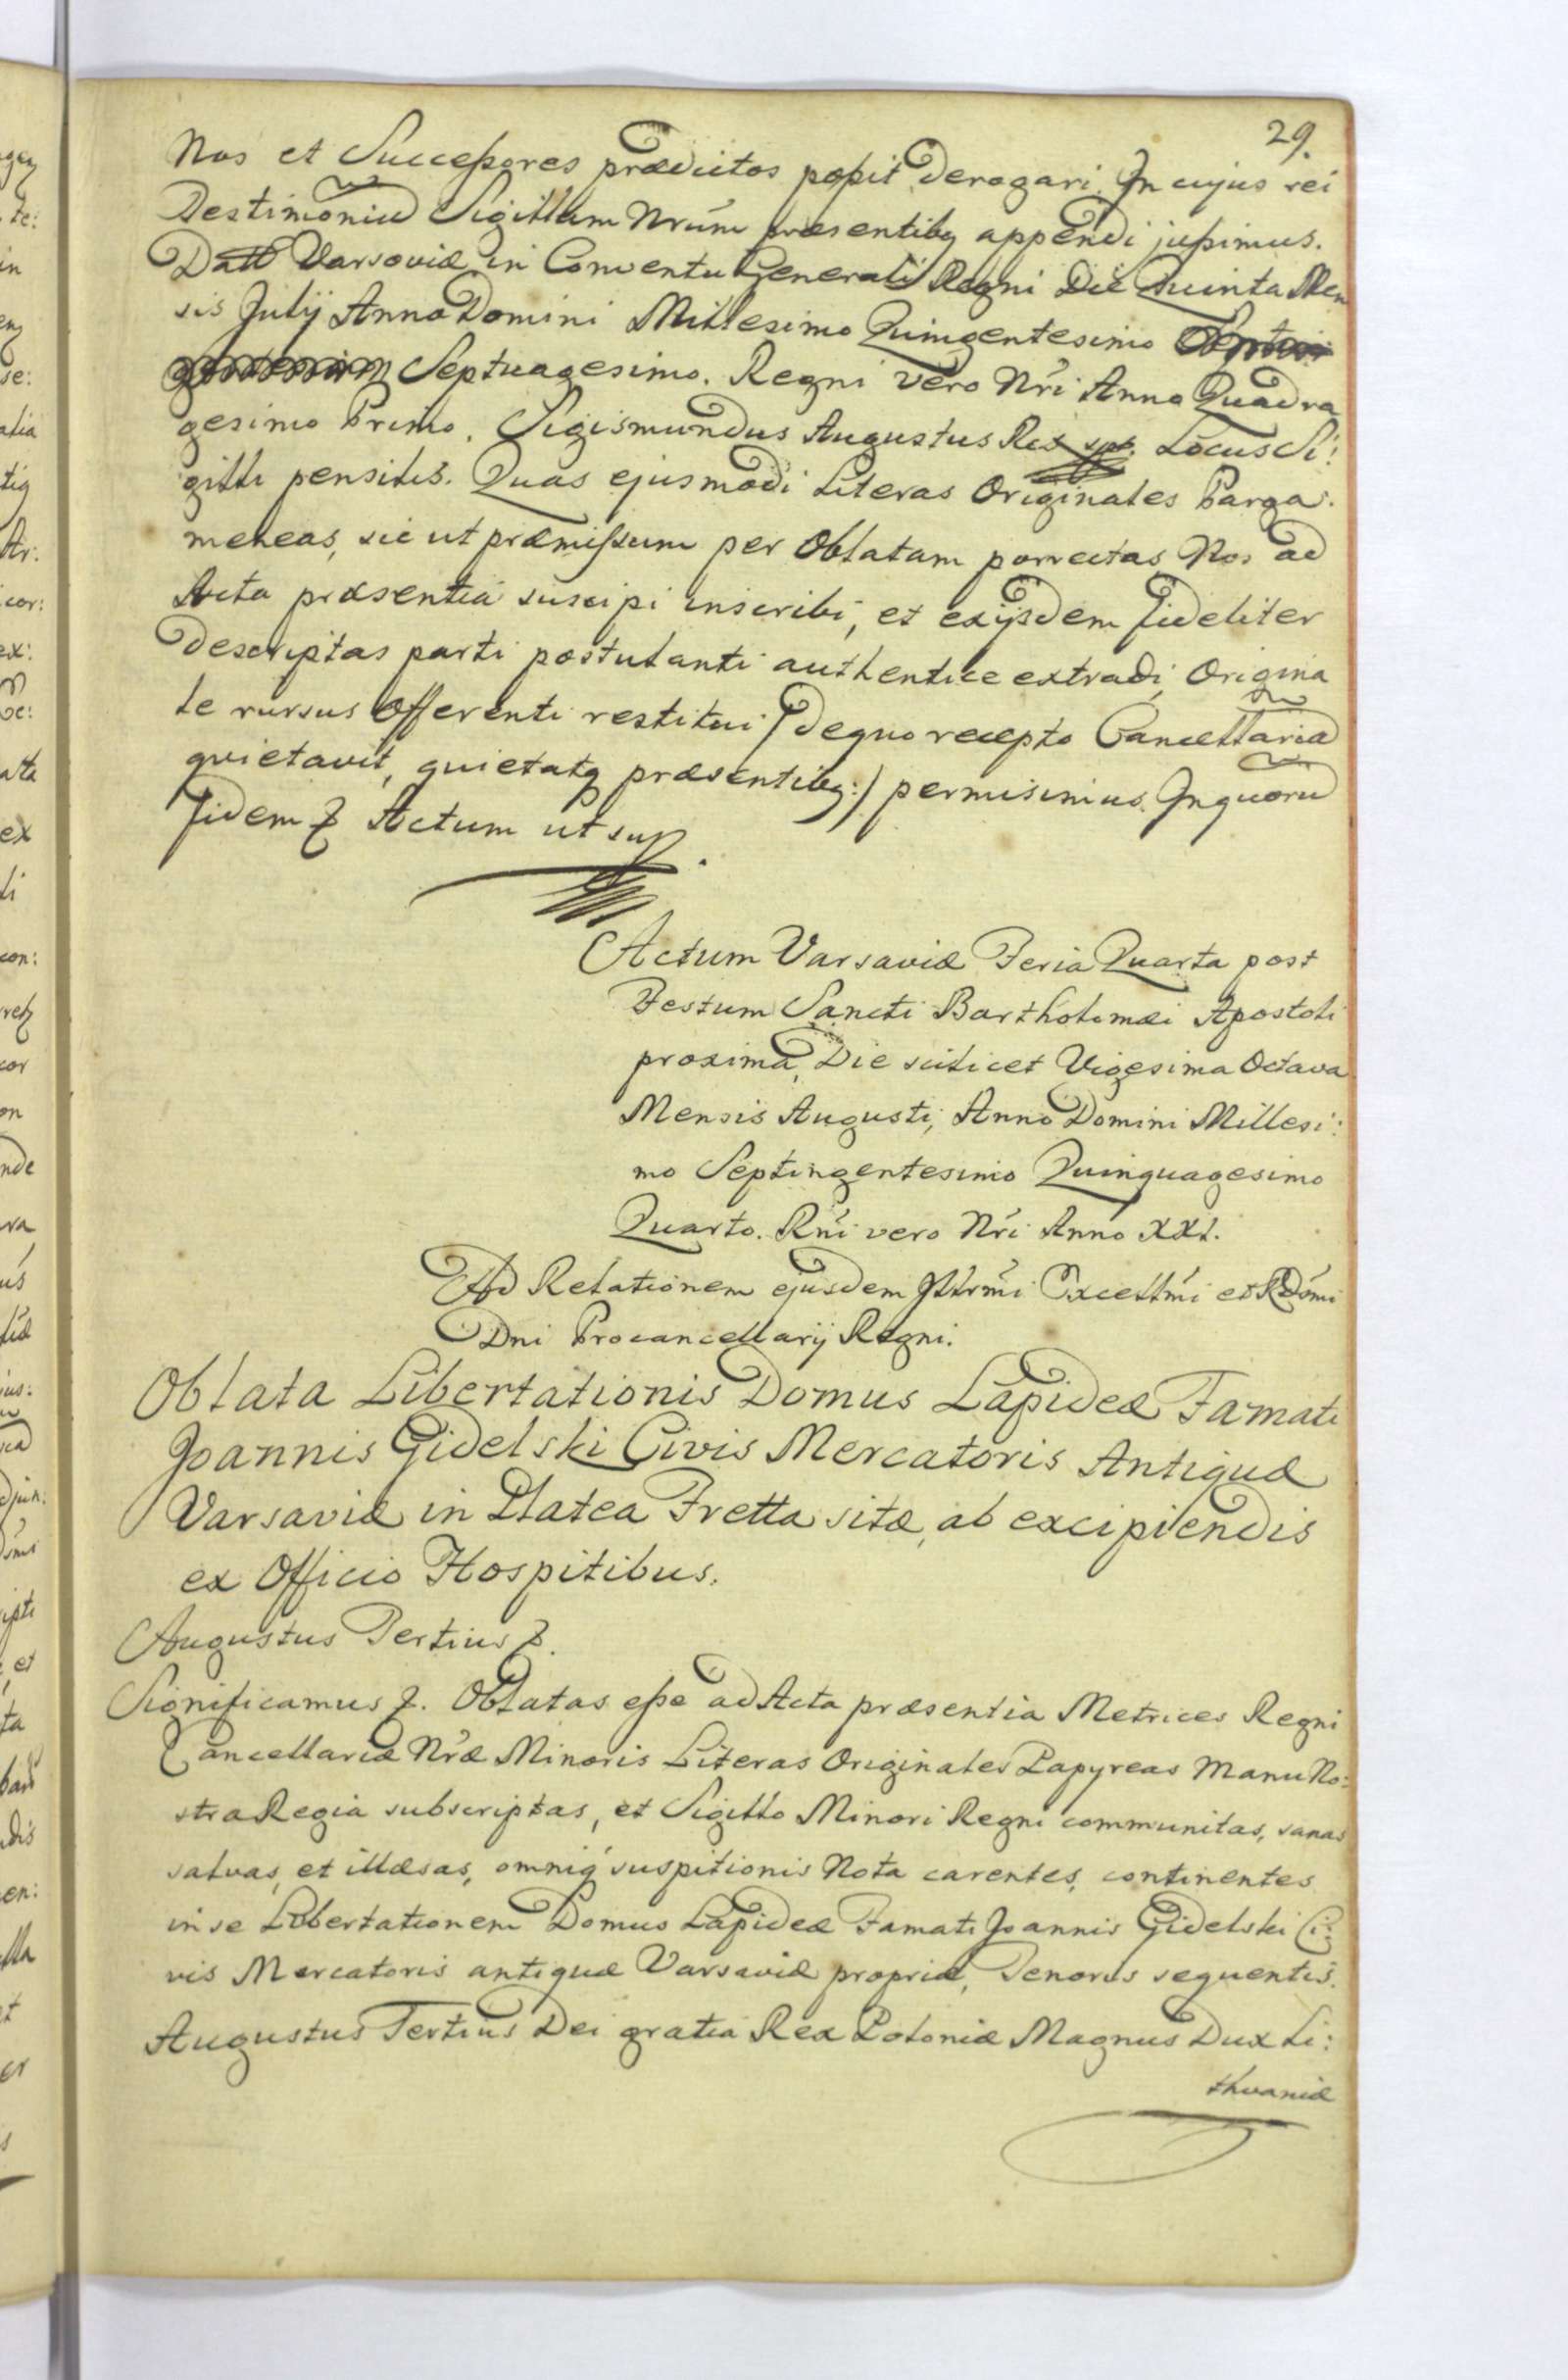 29.
Nos et Successores prædictos possit derogari. In cujus rei
Testimoniu Sigillum Nrum præsentibq appendi jussimus.
Datt Varsoviæ in Conventu Generali Regni Die Quinta Men
sis Julij Anno Domini Millesimo Quingentesimo
Septuagesimo. Regni vero Nri Anno Quadra
gesimo Primo. Sigismundus Augustus Rex Locus Si:
gilli pensilis. Quas ejusmodi Literas Originales Parga:
meneas, sic ut præmissum per Oblatam porrectas Nos ad
Acta præsentia suscipi inscribi, et exijsdem fideliter
descriptas parti postulanti authentice extradi, Origina
le rursus Offerenti restitui /: dequo recepto Cancellaria
quietavit, quietatq præsentibq :/ permisimus. Inquoru
fidem & Actum ut sup.
Actum Varsaviæ Feria Quarta post
Festum Sancti Bartholomæi Apostoli
proxima, Die scilicet Vigesima Octava
Mensis Augusti, Anno Domini Millesi:
mo Septingentesimo Quinquagesimo
Quarto. Rni vero Nri Anno XXI.
Ad Relationem ejusdem Illrmi Excellmi et Rdmi
Dni Procancellarij Regni.
Oblata Libertationis Domus Lapideæ Famati
Joannis Gidelski Civis Mercatoris Antiquæ
Varsaviæ in Platea Fretta sitæ, ab excipiendis
ex Officio Hospitibus.
Augustus Tertius &.
Significamus &. Oblatas esse ad Acta præsentia Metrices Regni
Cancellariæ Nræ Minoris Literas Originales Papyreas Manu No:
stra Regia subscriptas, et Sigillo Minori Regni communitas, sanas
salvas, et illæsas, omniq suspitionis Nota carentes, continentes
in se Libertationem Domus Lapideæ Famati Joannis Gidelski Ci:
vis Mercatoris antiquæ Varsaviæ propriæ, Tenoris sequentis.
Augustus Tertius Dei gratia Rex Poloniæ Magnus Dux Li:
thuaniæ